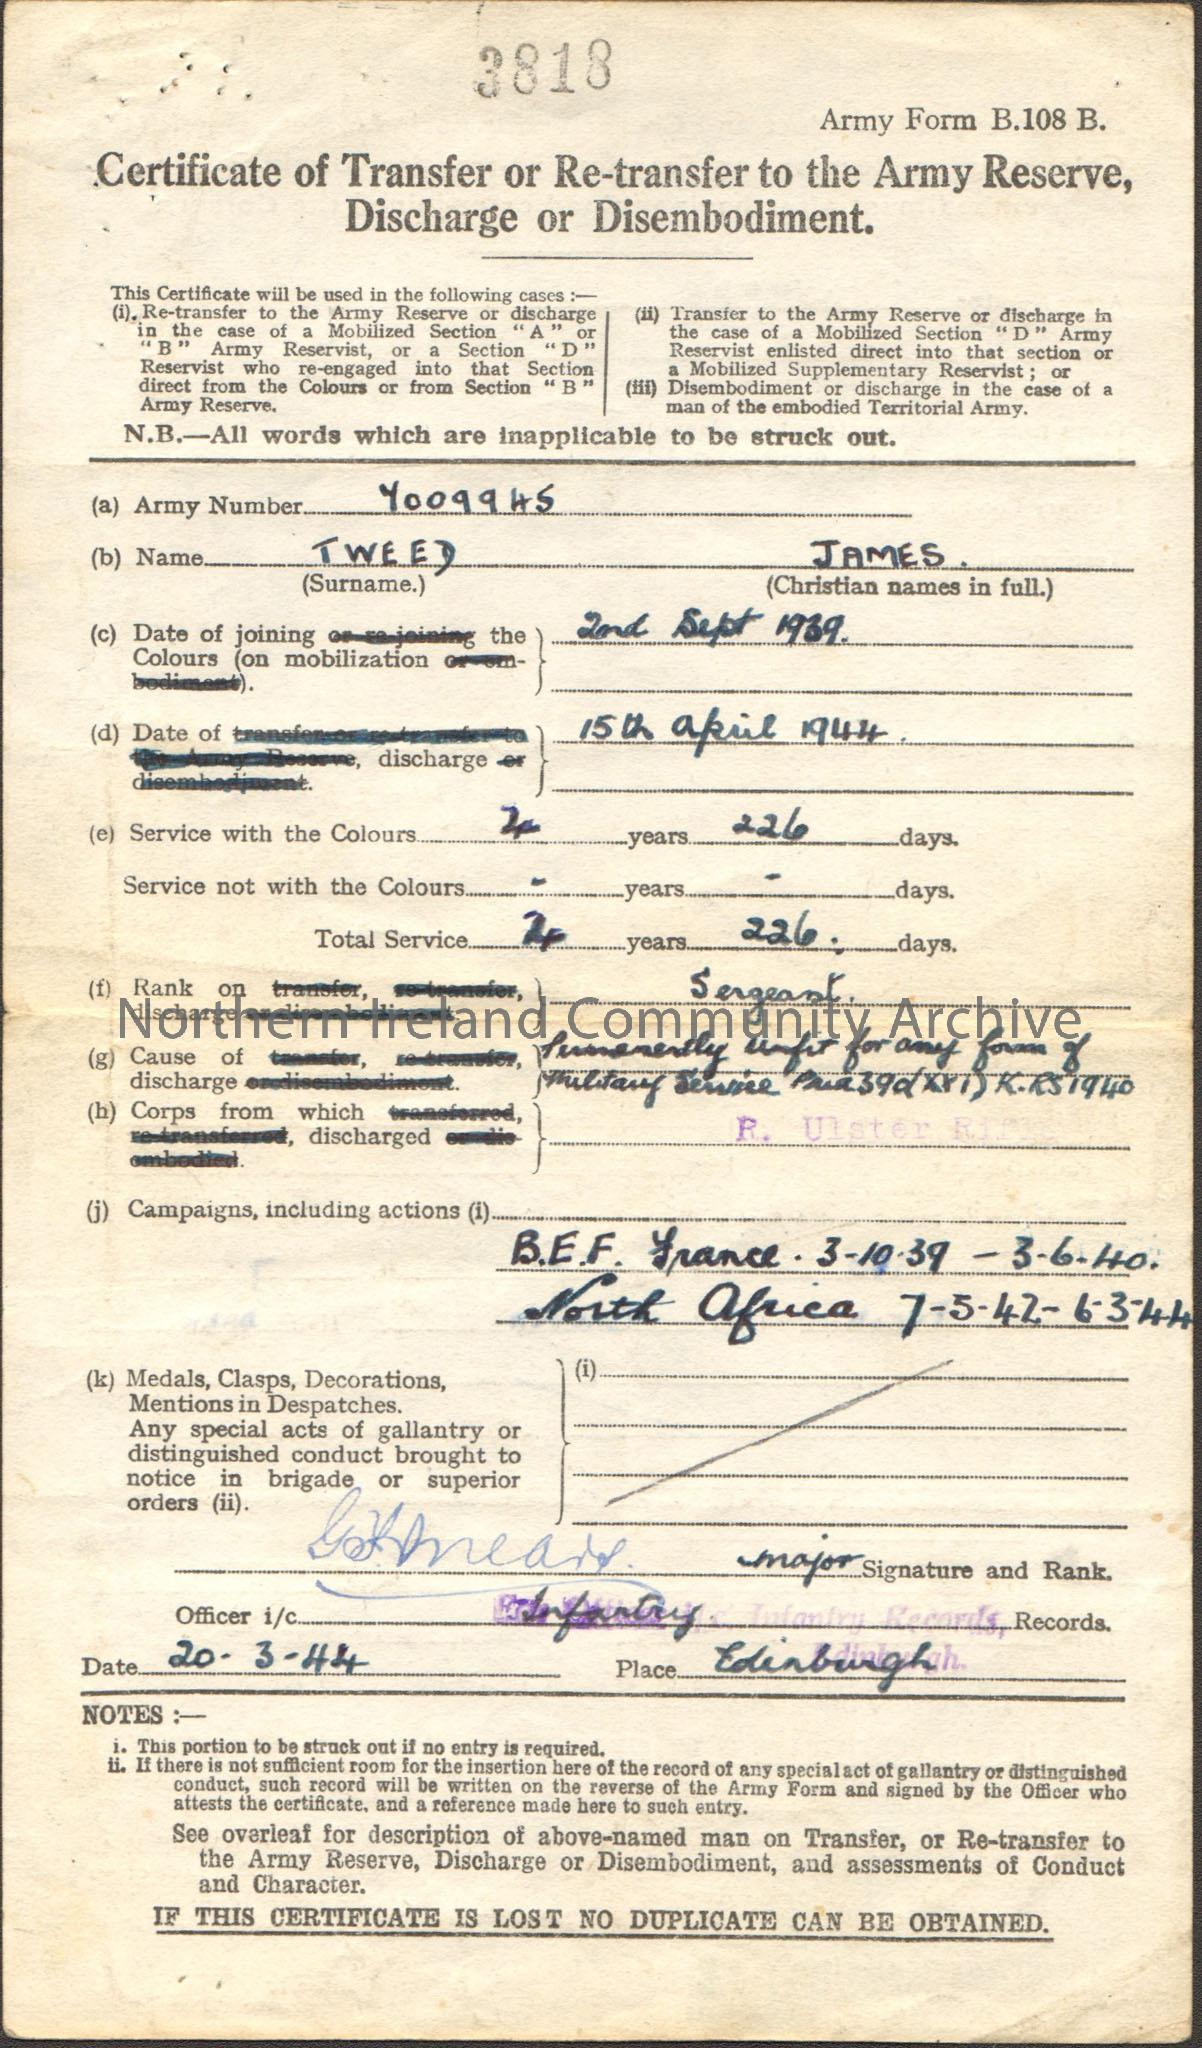 3818
Army Form B.108 B.
Certificate of Transfer or Re-transfer to the Army Reserve,
Discharge or Disembodiment.
This Certificate will be used in the following cases :—
(i). Re-transfer to the Army Reserve or discharge
in the case of a Mobilized Section "A" or
"B" Army Reservist, or a Section "D"
Reservist who re-engaged into that Section
direct from the Colours or from Section "B"
Army Reserve.
(ii) Transfer to the Army Reserve or discharge in
the case of a Mobilized Section "D" Army
Reservist enlisted direct into that section or
a Mobilized Supplementary Reservist ; or
(iii) Disembodiment or discharge in the case of a
man of the embodied Territorial Army.
N.B.—All words which are inapplicable to be struck out.
(a) Army Number 7009945
(b) Name TWEED JAMES.
(Surname.) (Christian names in full.)
(c) Date of joining or re-joining the 2nd Sept 1939.
Colours (on mobilization or em-
bodiment).
(d) Date of transfer or re-transfer to 15th April 1944.
the Army Reserve, discharge or
disembodiment.
(e) Service with the Colours 4 years 226 days.
Service not with the Colours - years - days.
Total Service 4 years 226. days.
(f) Rank on transfer, re-transfer, Sergeant.
discharge or disembodiment.
Northern Ireland Community Archive
(g) Cause of transfer, re-transfer, Permanently unfit for any form of
discharge or disembodiment. Military Service Para 390(XVI) K.RS 1940
(h) Corps from which transferred,
re-transferred, discharged or dis- R. Ulster Rifles
embodied.
(j) Campaigns, including actions (i)
B.E.F. France. 3-10-39 – 3-6-40.
North Africa 7-5-42 - 6-3-44
(k) Medals, Clasps, Decorations, (i)
Mentions in Despatches.
Any special acts of gallantry or
distinguished conduct brought to
notice in brigade or superior
orders (ii).
major Signature and Rank.
Officer i/c Infantry i/c. Infantry Records, Records.
Edinburgh.
Date 20-3-44 Place Edinburgh
NOTES :—
i. This portion to be struck out if no entry is required.
ii. If there is not sufficient room for the insertion here of the record of any special act of gallantry or distinguished
conduct, such record will be written on the reverse of the Army Form and signed by the Officer who
attests the certificate, and a reference made here to such entry.
See overleaf for description of above-named man on Transfer, or Re-transfer to
the Army Reserve, Discharge or Disembodiment, and assessments of Conduct
and Character.
IF THIS CERTIFICATE IS LOST NO DUPLICATE CAN BE OBTAINED.